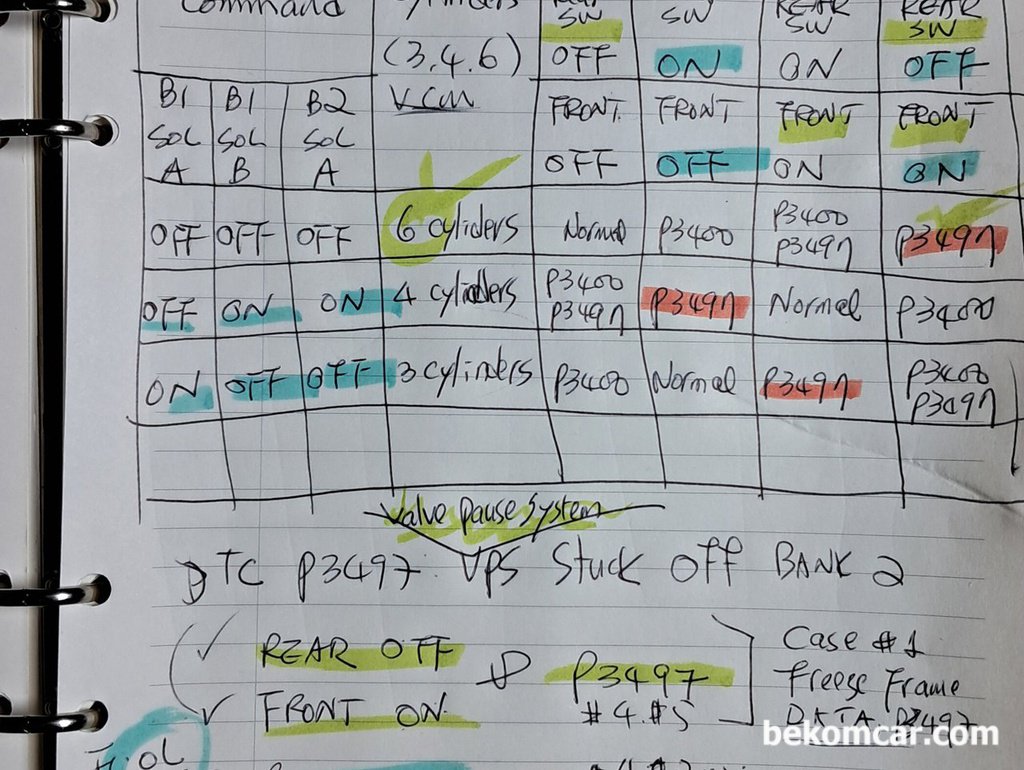 Command
cylinders
SW
SW
REAR
SW
REAR
SW
(3,4,6)
OFF
ON
ON
OFF
B1
SOL
A
B1
SOL
B
B2
SOL
A
VCM
FRONT
OFF
FRONT
OFF
FRONT
ON
FRONT
ON
OFF
OFF
OFF
6 cyliders
Normal
P3400
P3400
P3497
P3497
OFF
ON
ON
4 cylinders
P3400
P3497
P3497
Normal
P3400
ON
OFF
OFF
3 cylinders
P3400
Normal
P3497
P3400
P3497
Valve pause system
DTC P3497. VPS Stuck OFF BANK 2
REAR OFF
FRONT ON
P3497
#4.#5
Case #1
Freeze Frame
DATA P3497
bekomcar.com